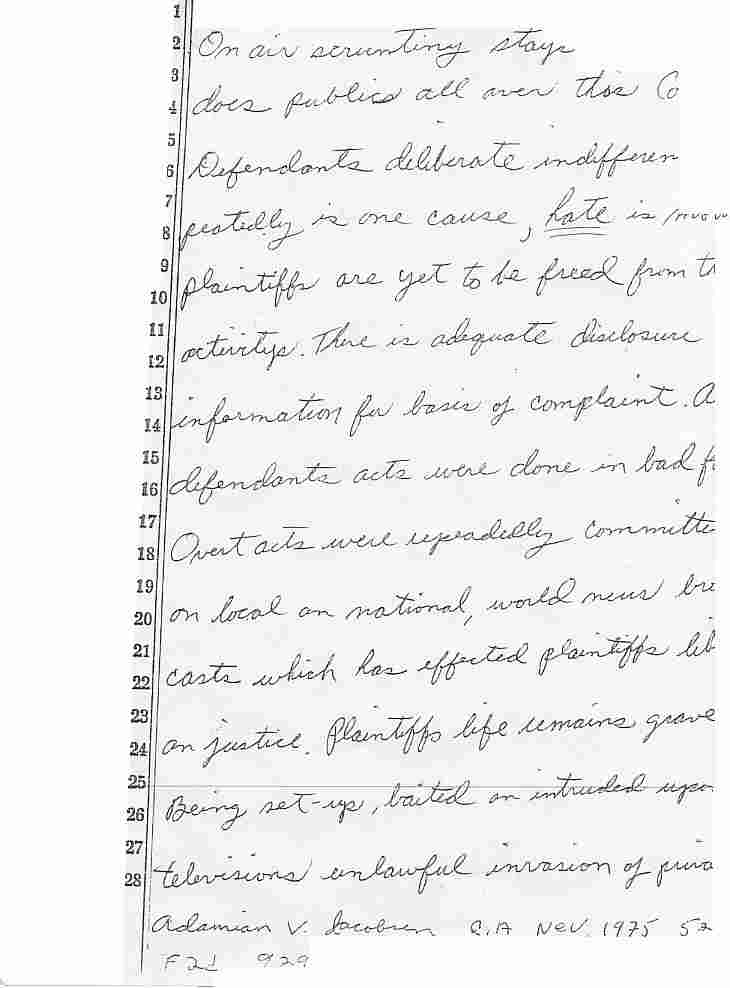 1
2 On air scruntiny stays
3
4 does publics all over this Co
5
6 Defendants deliberate indifferen
7
8 peatedly is one cause, hate is
9
10 plaintiffs are yet to be freed from th
11
12 activitys. There is adequate disclosure
13
14 information for basis of complaint. A
15
16 defendants acts were done in bad f
17
18 Overt acts were repeadedly committe
19
20 on local an national, world news bro
21
22 casts which has effected plaintiffs lib
23
24 an justice. Plaintiffs life remains grave
25
26 Being set-up, baited an intruded upon
27
28 televisions unlawful invasion of priva
Adamian v. Jacobsen C.A Nev. 1975 52
F 2d 929